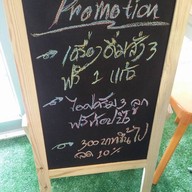 Promotion
เครื่องดื่มสั่ง 3
ฟรี 1 แก้ว
ไอศครีม 3 ลูก
ฟรีท้อปปิ้ง
300 บาทขึ้นไป
ลด 10%